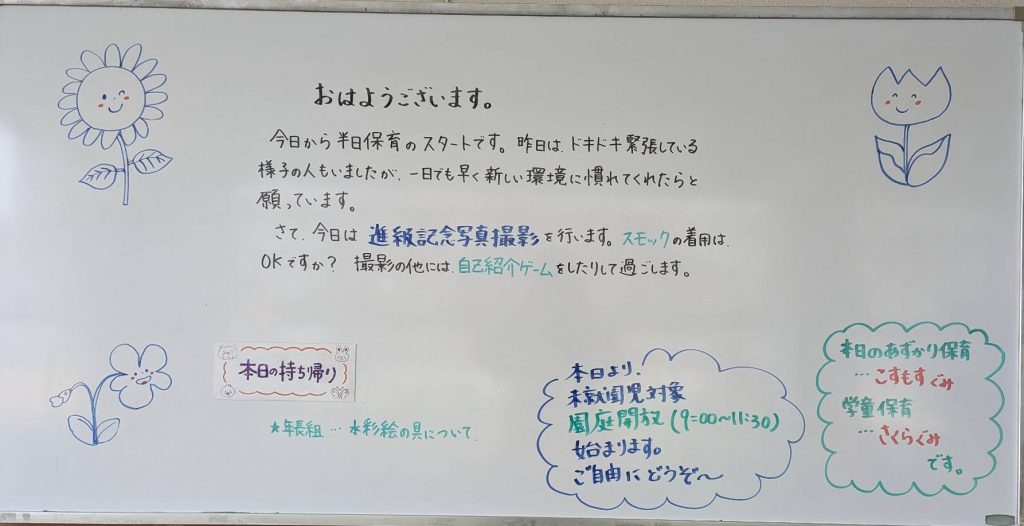 おはようございます。
今日から半日保育のスタートです。昨日は、ドキドキ緊張している
様子の人もいましたが、一日でも早く新しい環境に慣れてくれたらと
願っています。
さて、今日は 進級記念写真撮影を行います。スモックの着用は、
OKですか? 撮影の他には、自己紹介ゲームをしたりして過ごします。
本日の持ち帰り
★年長組…水彩絵の具について
本日より、
未就園児対象
園庭開放(9:00~11:30)
始まります。
ご自由にどうぞ~
本日のあずかり保育
…こすもすぐみ
学童保育
…さくらぐみ
です。